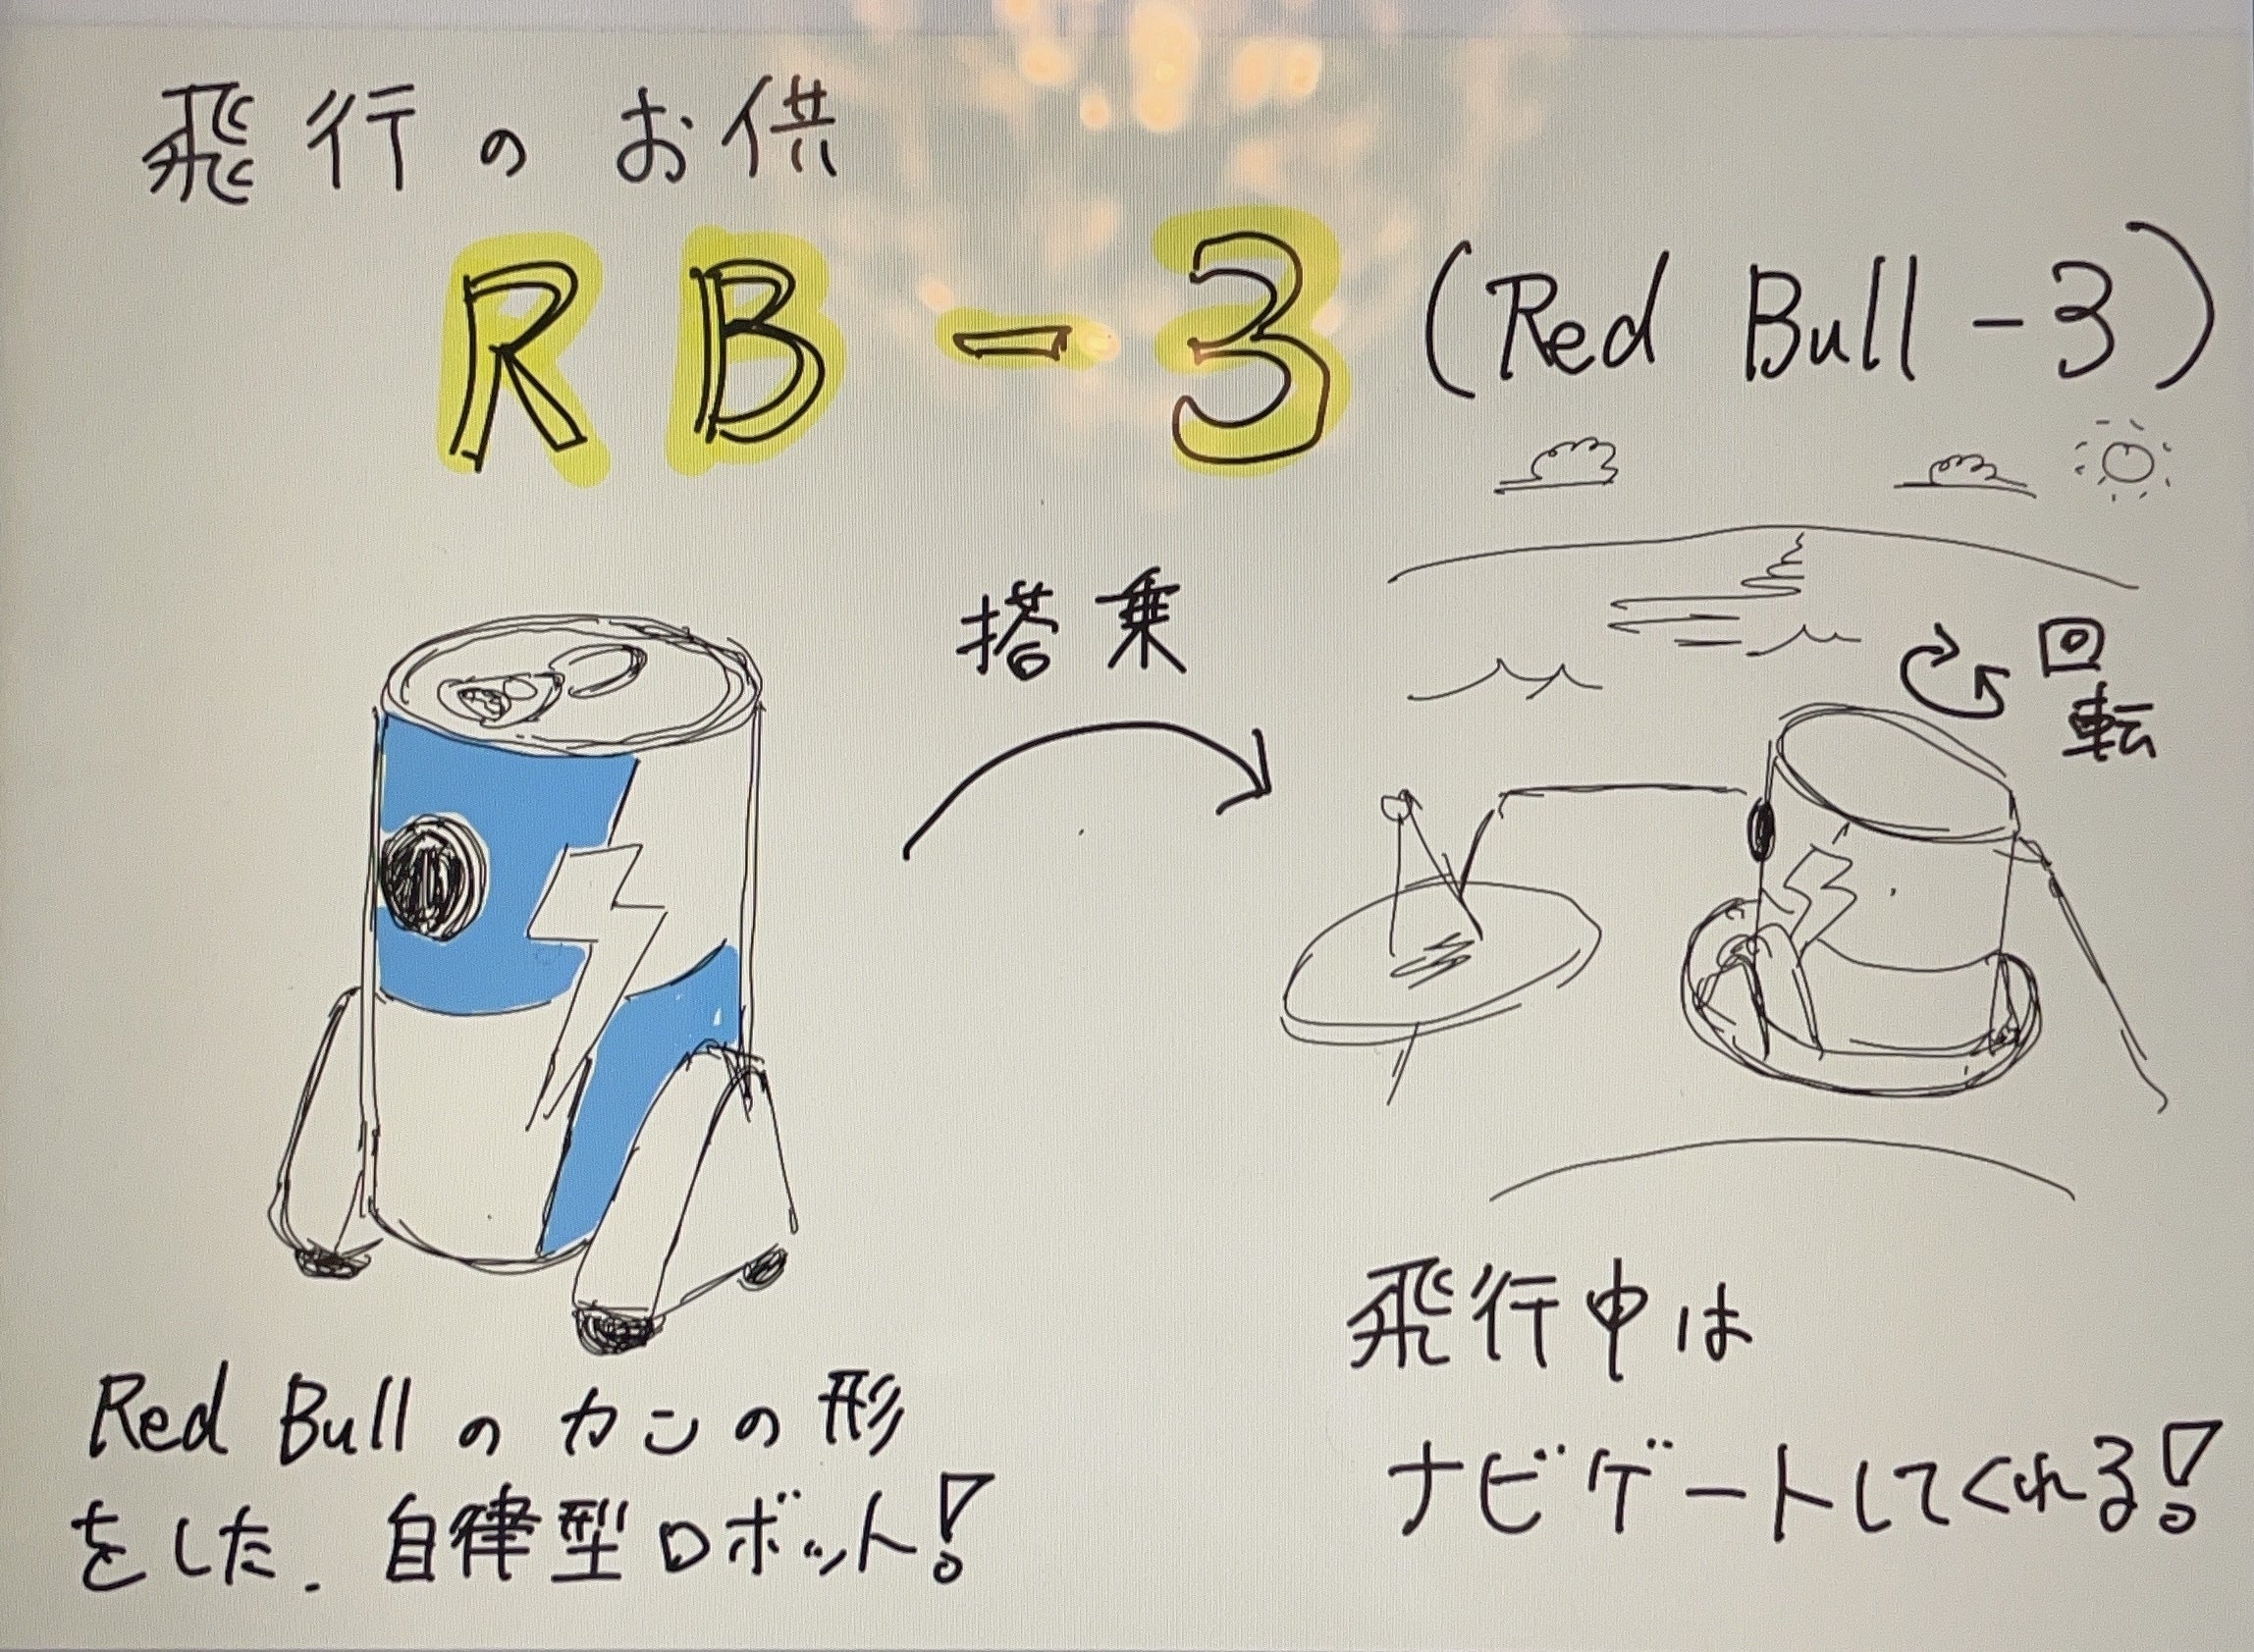 飛行のお供
RB-3 (Red Bull-3)
搭乗
回
転
Red Bullのカンの形
をした.自律型ロボット!
飛行中は
ナビゲートしてくれる!